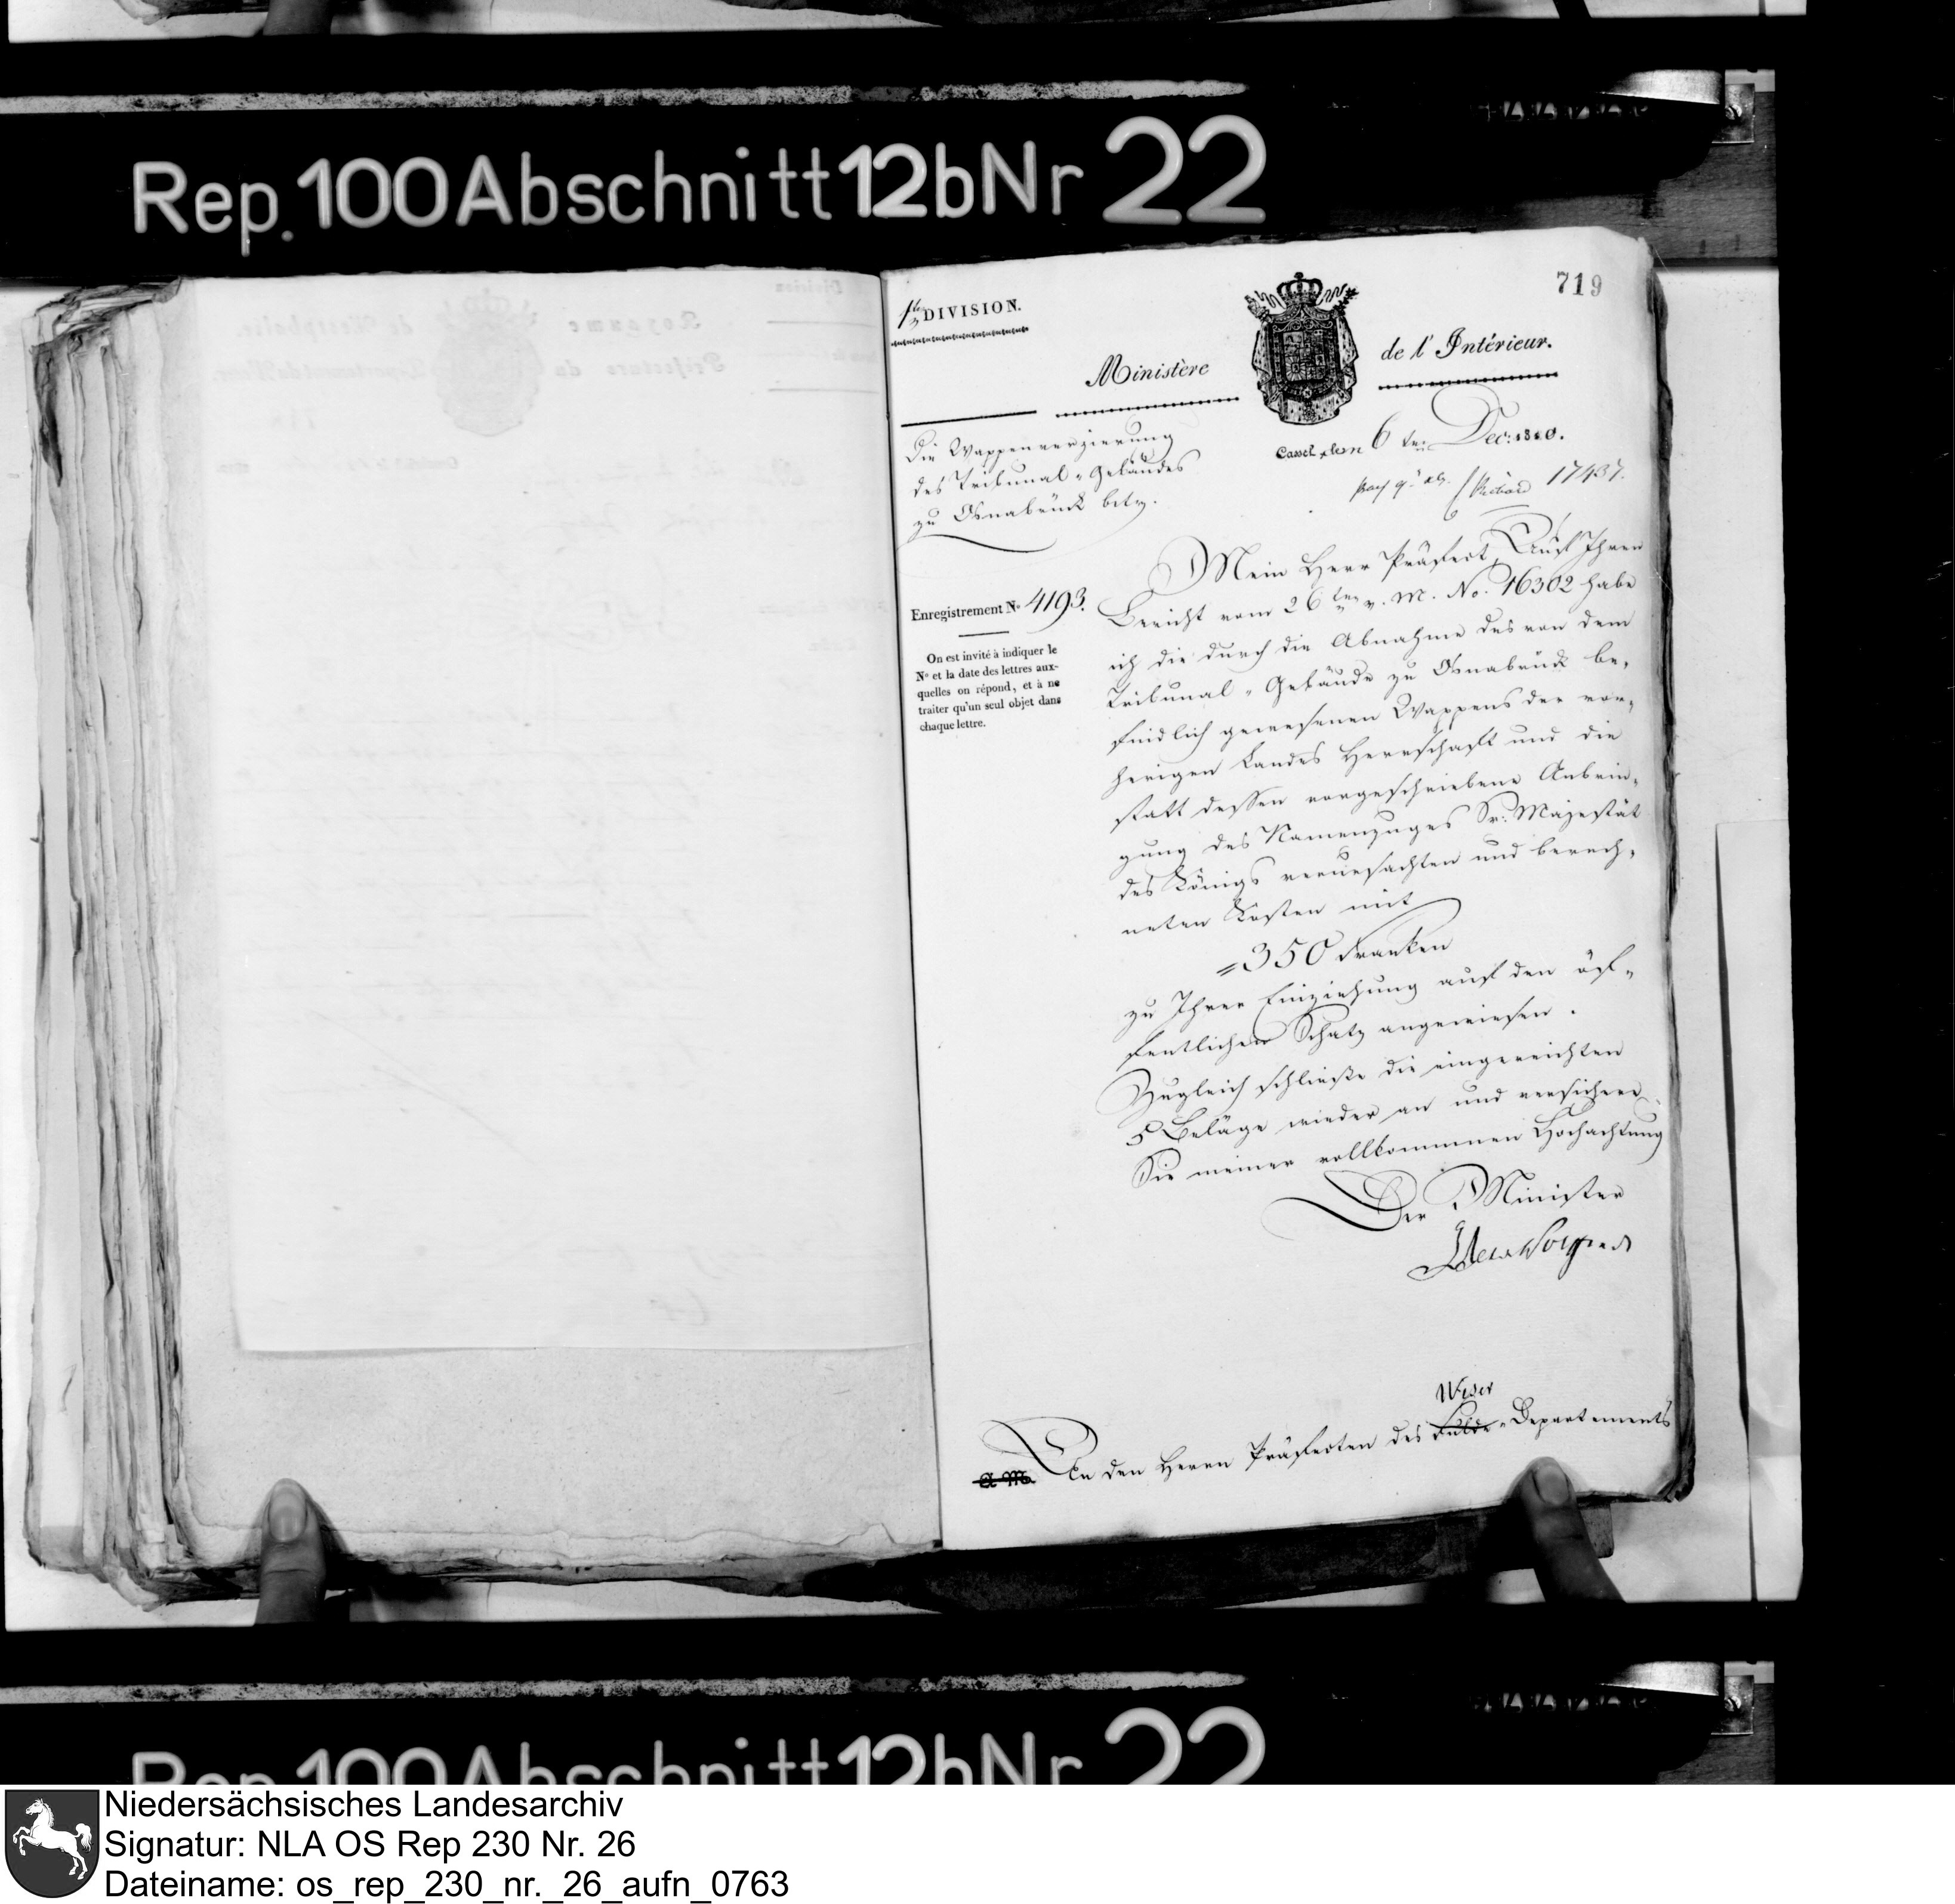 Rep. 100 Abschnitt 12b Nr 22
719
1te DIVISION.
Ministère de l'Intérieur.
Cassel, den 6ten Dec: 1810.
17437.
Die Wappenverzierung
des Tribunal-Gebäudes
zu Osnabrück betr.
Enregistrement No 4193.
On est invité à indiquer le
No et la date des lettres aux-
quelles on répond, et à ne
traiter qu'un seul objet dans
chaque lettre.
Mein Herr Präfect, Auf Ihren
Bericht vom 26ten v. M. No. 16302 habe
ich die durch die Abnahme des von dem
Tribunal-Gebäude zu Osnabrück be-
findlich gewesenen Wappens der vor-
herigen Landes Herrschaft und die
statt dessen vorgeschriebene Anbrin-
gung des Namenzuges Sr. Majestät
des Königs verursachten und berech-
neten Kosten mit
= 350 Franken
zu Ihrer Einziehung auf den öf-
fentlichen Schatz angewiesen.
Zugleich schließe die eingereichten
5 Beläge wieder an und versichere
Sie meiner vollkommnen Hochachtung
Der Minister
Weser
An den Herrn Präfecten des Fulda-Departements
Rep. 100 Abschnitt 12b Nr 22
Niedersächsisches Landesarchiv
Signatur: NLA OS Rep 230 Nr. 26
Dateiname: os_rep_230_nr._26_aufn_0763